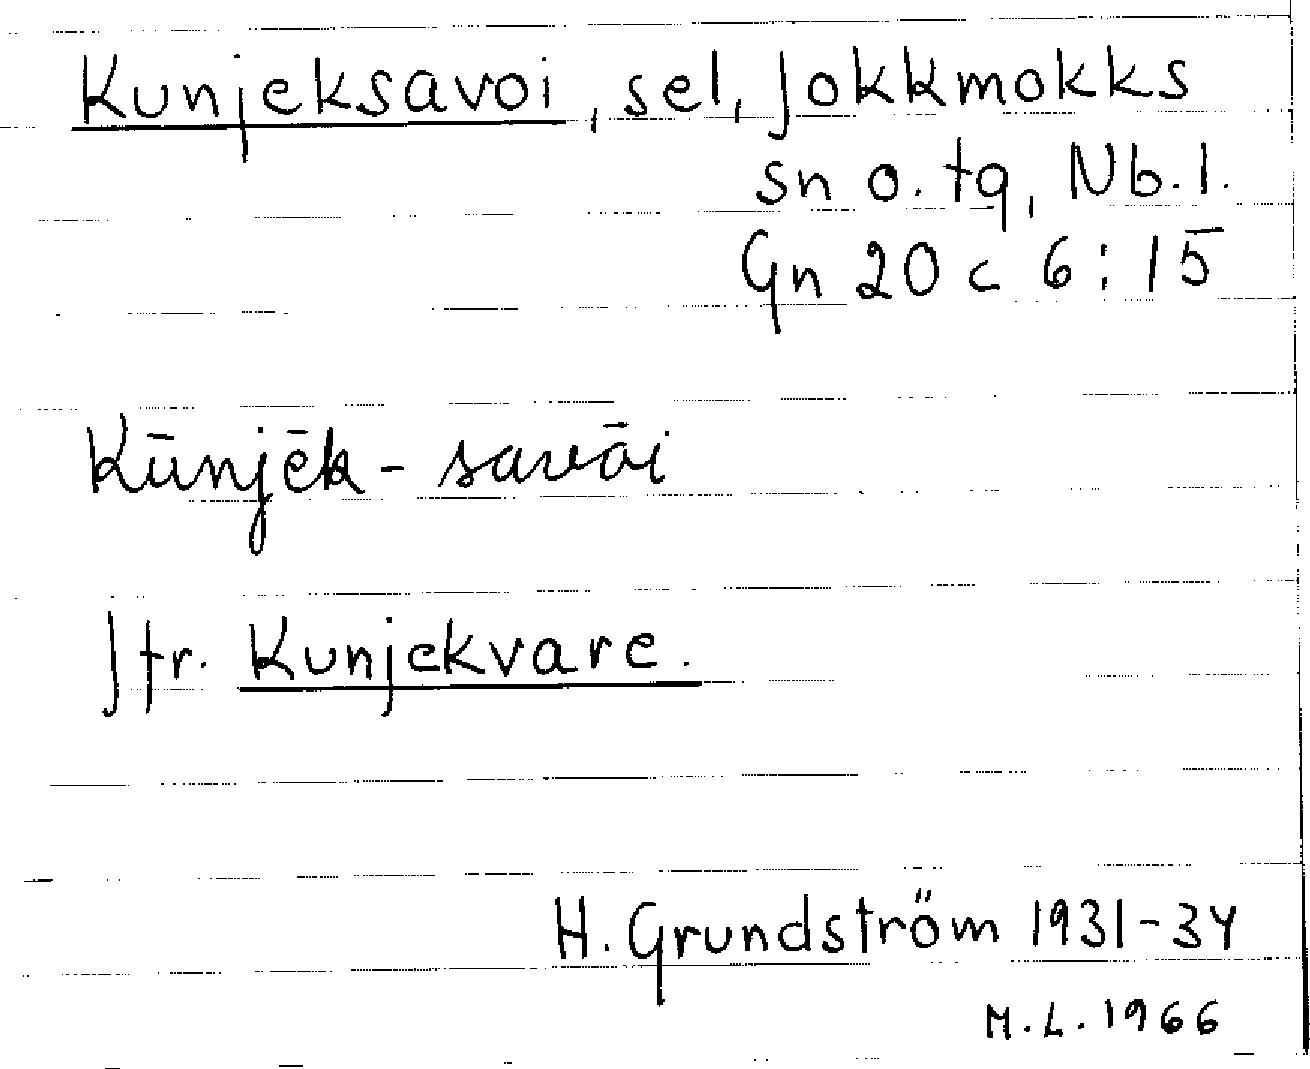 Kunjeksavoi, sel, Jokkmokks
sn o. tg, Nb. l.
Gn 20 c 6:15
Kūnjēk-savāi
Jfr. Kunjekvare.
H. Grundström 1931-34
M.L. 1966